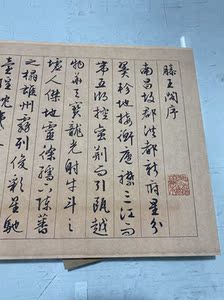 滕王閣序
南昌故郡洪都新府星分
翼軫地接衡廬襟三江而
帶五湖控蠻荊而引甌越
物華天寶龍光射牛斗之
墟人傑地靈徐孺下陳蕃
之榻雄州霧列俊彩星馳
臺隍枕夷